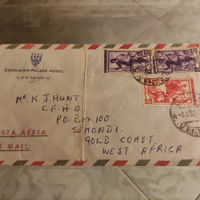 EXCELSIOR PALACE HOTEL
LIDO-VENEZIA
Mr K.J. HUNT
C.F.H.O
P.O. BOX. 100.
SEKONDI.
GOLD COAST.
WEST AFRICA.
POSTA AEREA
AIR MAIL